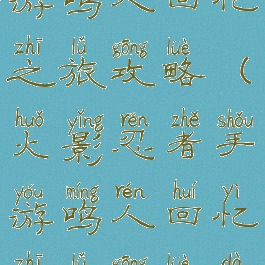 游鸣人回忆
zhī lǚ gōng lüè
之旅攻略（
huǒ yǐng rěn zhě shǒu
火影忍者手
yóu míng rén huí yì
游鸣人回忆
zhī lǚ gōng lüè dà